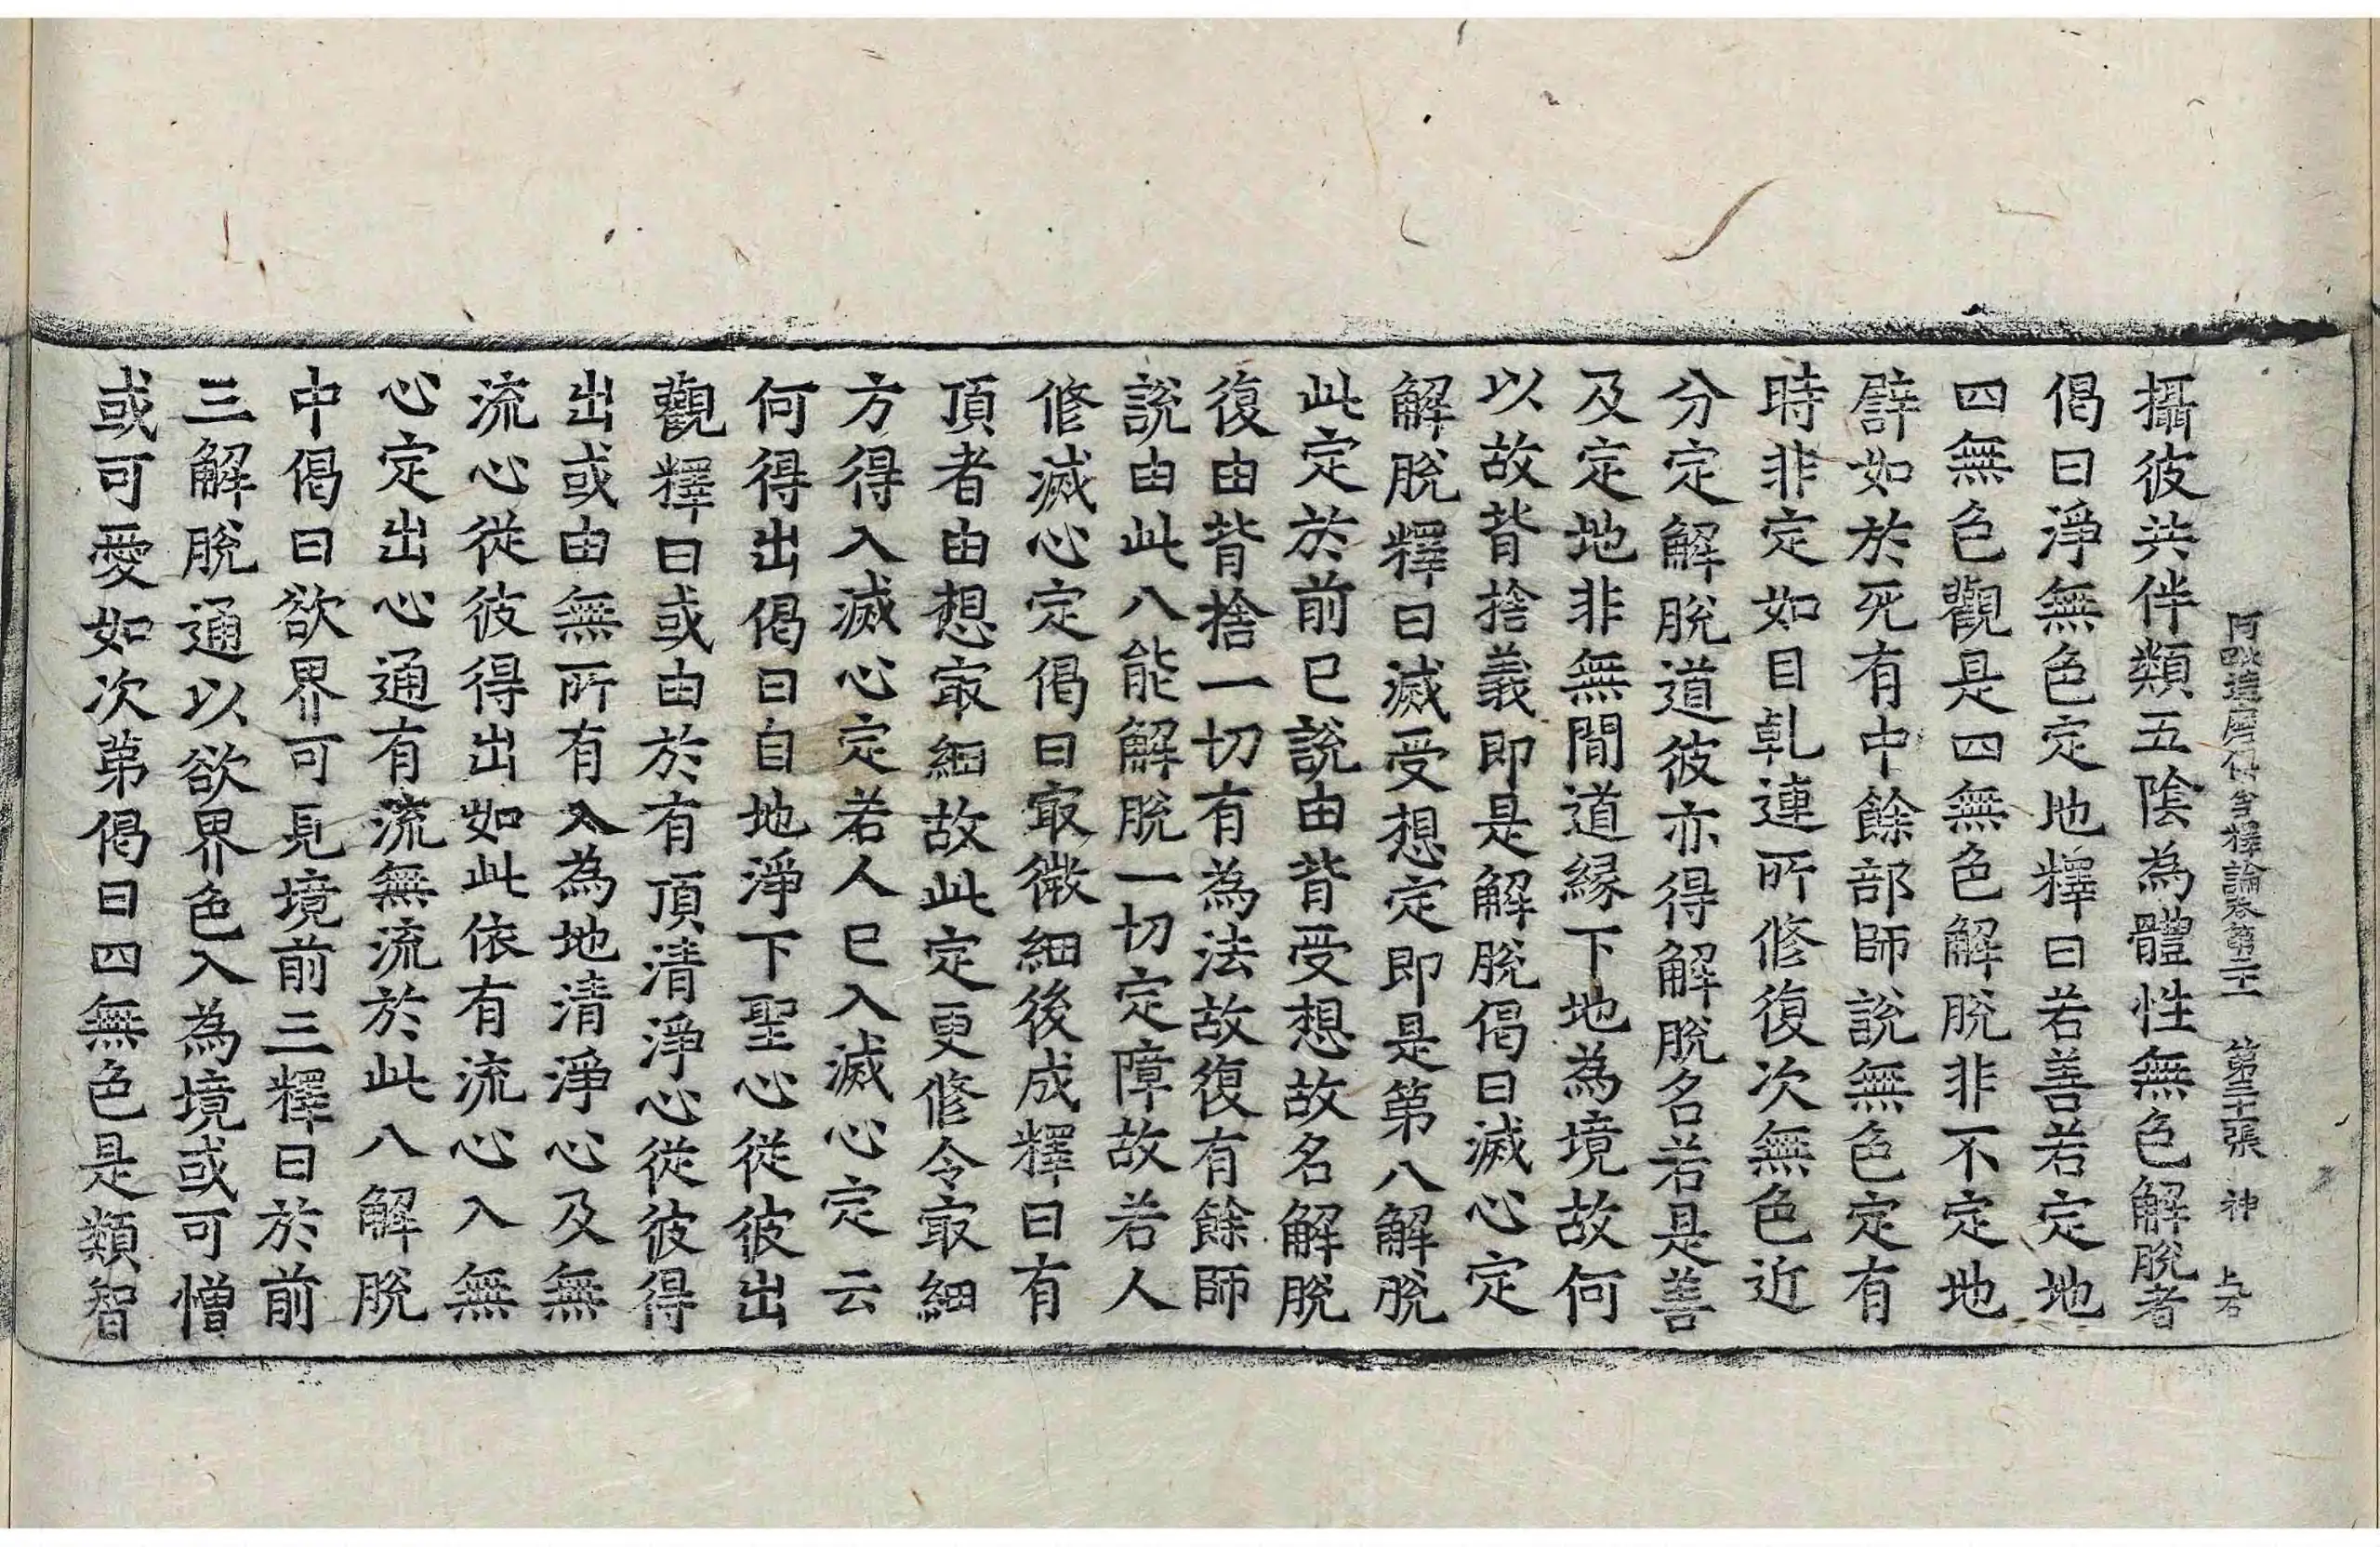 阿毗達磨俱舍釋論卷第二十一 第二十張 神
攝彼共伴類五陰為體性無色解脫者
偈曰淨無色定地釋曰若善若定地
四無色觀是四無色解脫非不定地
譬如於死有中餘部師說無色定有
時非定如目乹連所修復次無色近
分定解脫道彼亦得解脫名若是善
及定地非無間道緣下地為境故何
以故背捨義即是解脫偈曰滅心定
解脫釋曰滅受想定即是第八解脫
此定於前已說由背受想故名解脫
復由背捨一切有為法故復有餘師
說由此八能解脫一切定障故若人
修滅心定偈曰㝡微細後成釋曰有
頂者由想㝡細故此定更修令㝡細
方得入滅心定若人已入滅心定云
何得出偈曰自地淨下聖心從彼出
觀釋曰或由於有頂清淨心從彼得
出或由無所有入為地清淨心及無
流心從彼得出如此依有流心入無
心定出心通有流無流於此八解脫
中偈曰欲界可見境前三釋曰於前
三解脫通以欲界色入為境或可憎
或可愛如次第偈曰四無色是類智